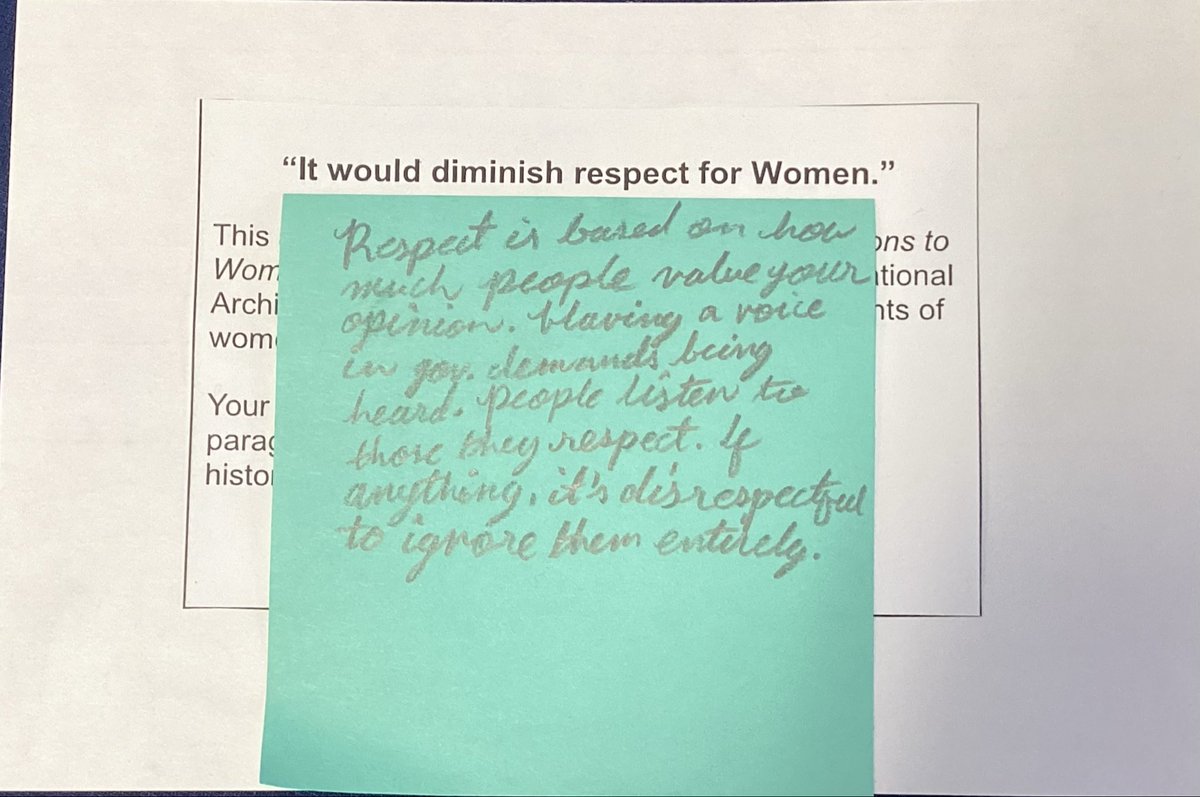 “It would diminish respect for Women.”
This
ons to
Wom
tional
Archi
nts of
wom
Your
parag
histor
Respect is based on how
much people value your
opinion. Having a voice
in gov. demands being
heard. People listen to
those they respect. If
anything, it's disrespectful
to ignore them entirely.